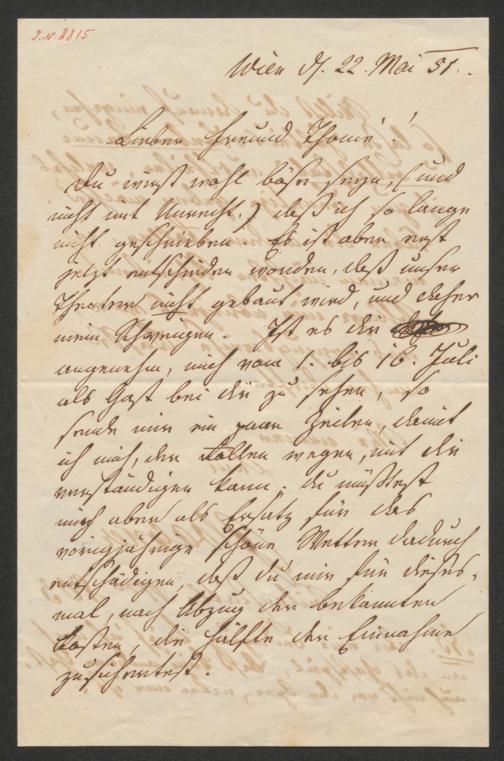 J.N. 8815
Wien d. 22. Mai 51.
Lieber Freund Thomé!
Du wirst wohl böse seyn, (und
nicht mit Unrecht.) daß ich so lange
nicht geschrieben. Es ist aber erst
jetzt entschieden worden, daß unser
Theater nicht gebaut wird, und daher
mein Schweigen. Ist es dir
angenehm, mich vom 1. bis 16. Juli
als Gast bei dir zu sehen, so
sende mir ein paar Zeilen, damit
ich mich, der Rollen wegen, mit dir
verständigen kann; du müßtest
mich aber als Ersatz für das
vorigjährige schöne Wetter dadurch
entschädigen, daß du mir für dieses-
mal, nach Abzug der bekannten
Kosten, die Hälfte der Einnahme
zusichertest.